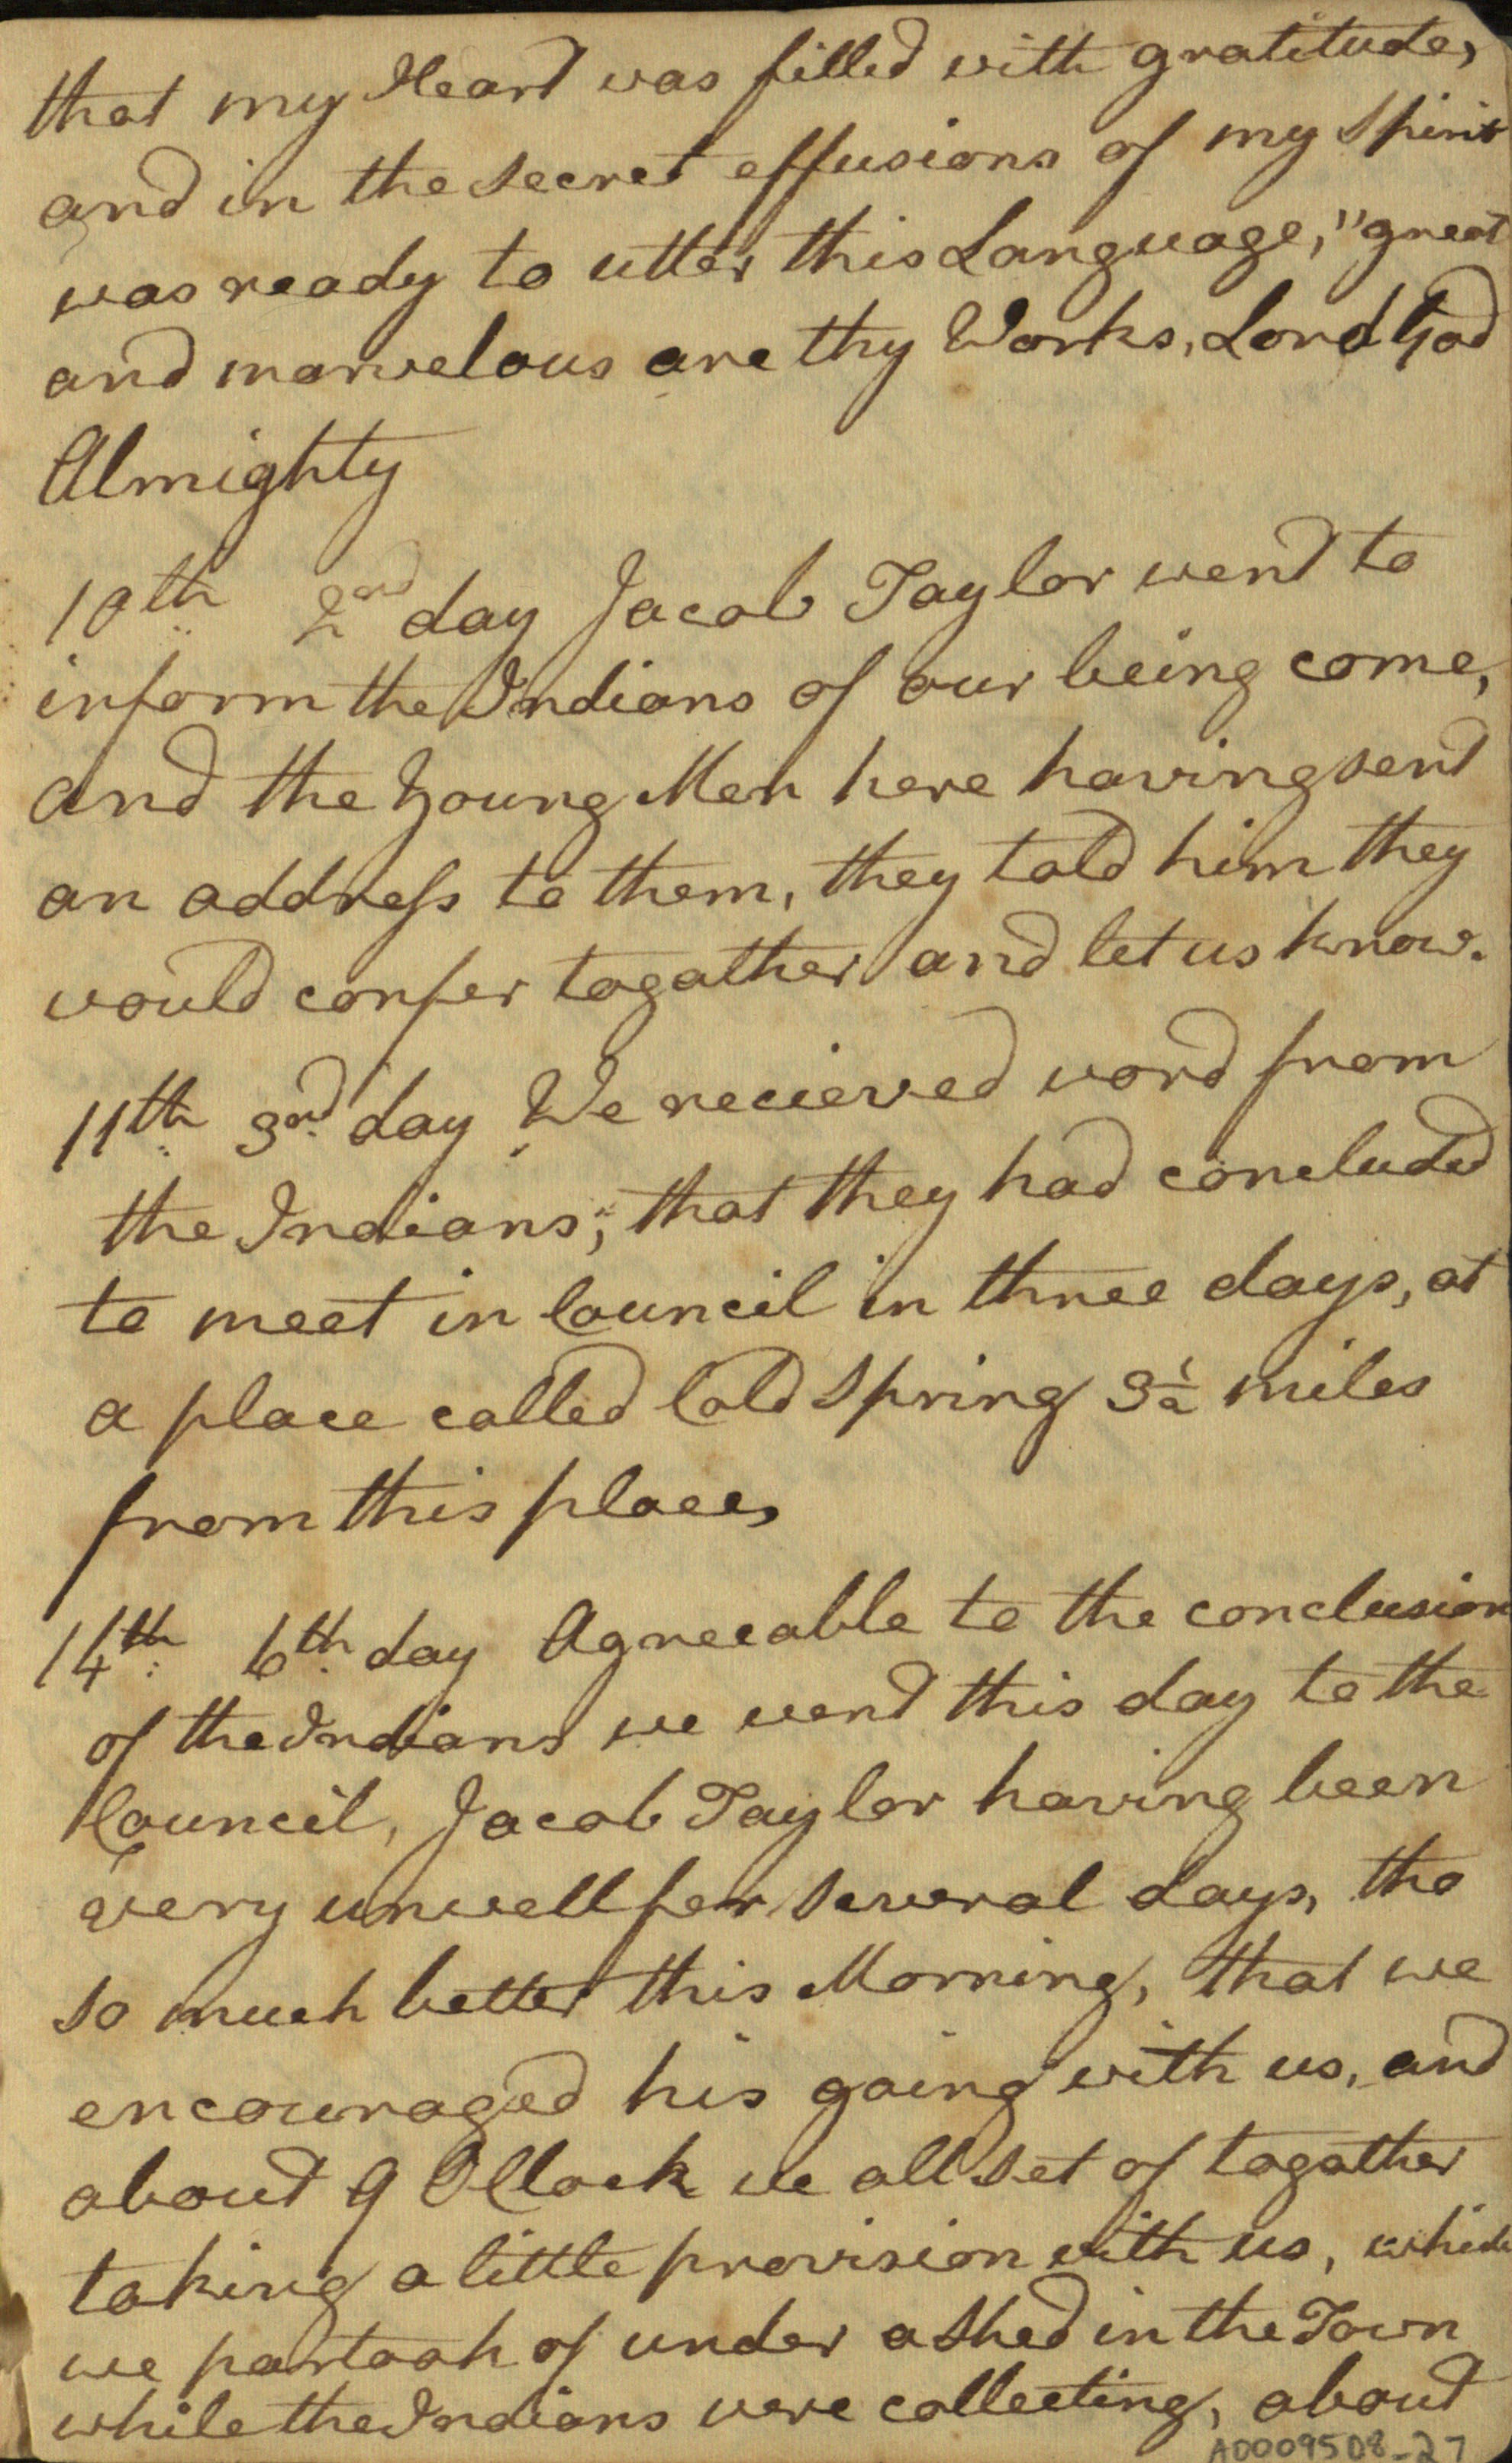 that my Heart was filled with gratitude,
and in the secret effusions of my spirit
was ready to utter this Language, "great
and marvelous are thy Works, Lord God
Almighty
10th 2nd day Jacob Taylor went to
inform the Indians of our being come,
and the Young Men here having sent
an address to them, they told him they
would confer togather and let us know.
11th 3rd day We recieved word from
the Indians; that they had concluded
to meet in Council in three days, at
a place called Cold Spring 3½ miles
from this place,
14th 6th day Agreeable to the conclusion
of the Indians we went this day to the
Council, Jacob Taylor having been
very unwell for several days, tho
so much better this Morning, that we
encouraged his going with us, and
about 9 OClock we all set of togather
taking a little provision with us, which
we partook of under a Shed in the Town
while the Indians were collecting, about
A0009508-27